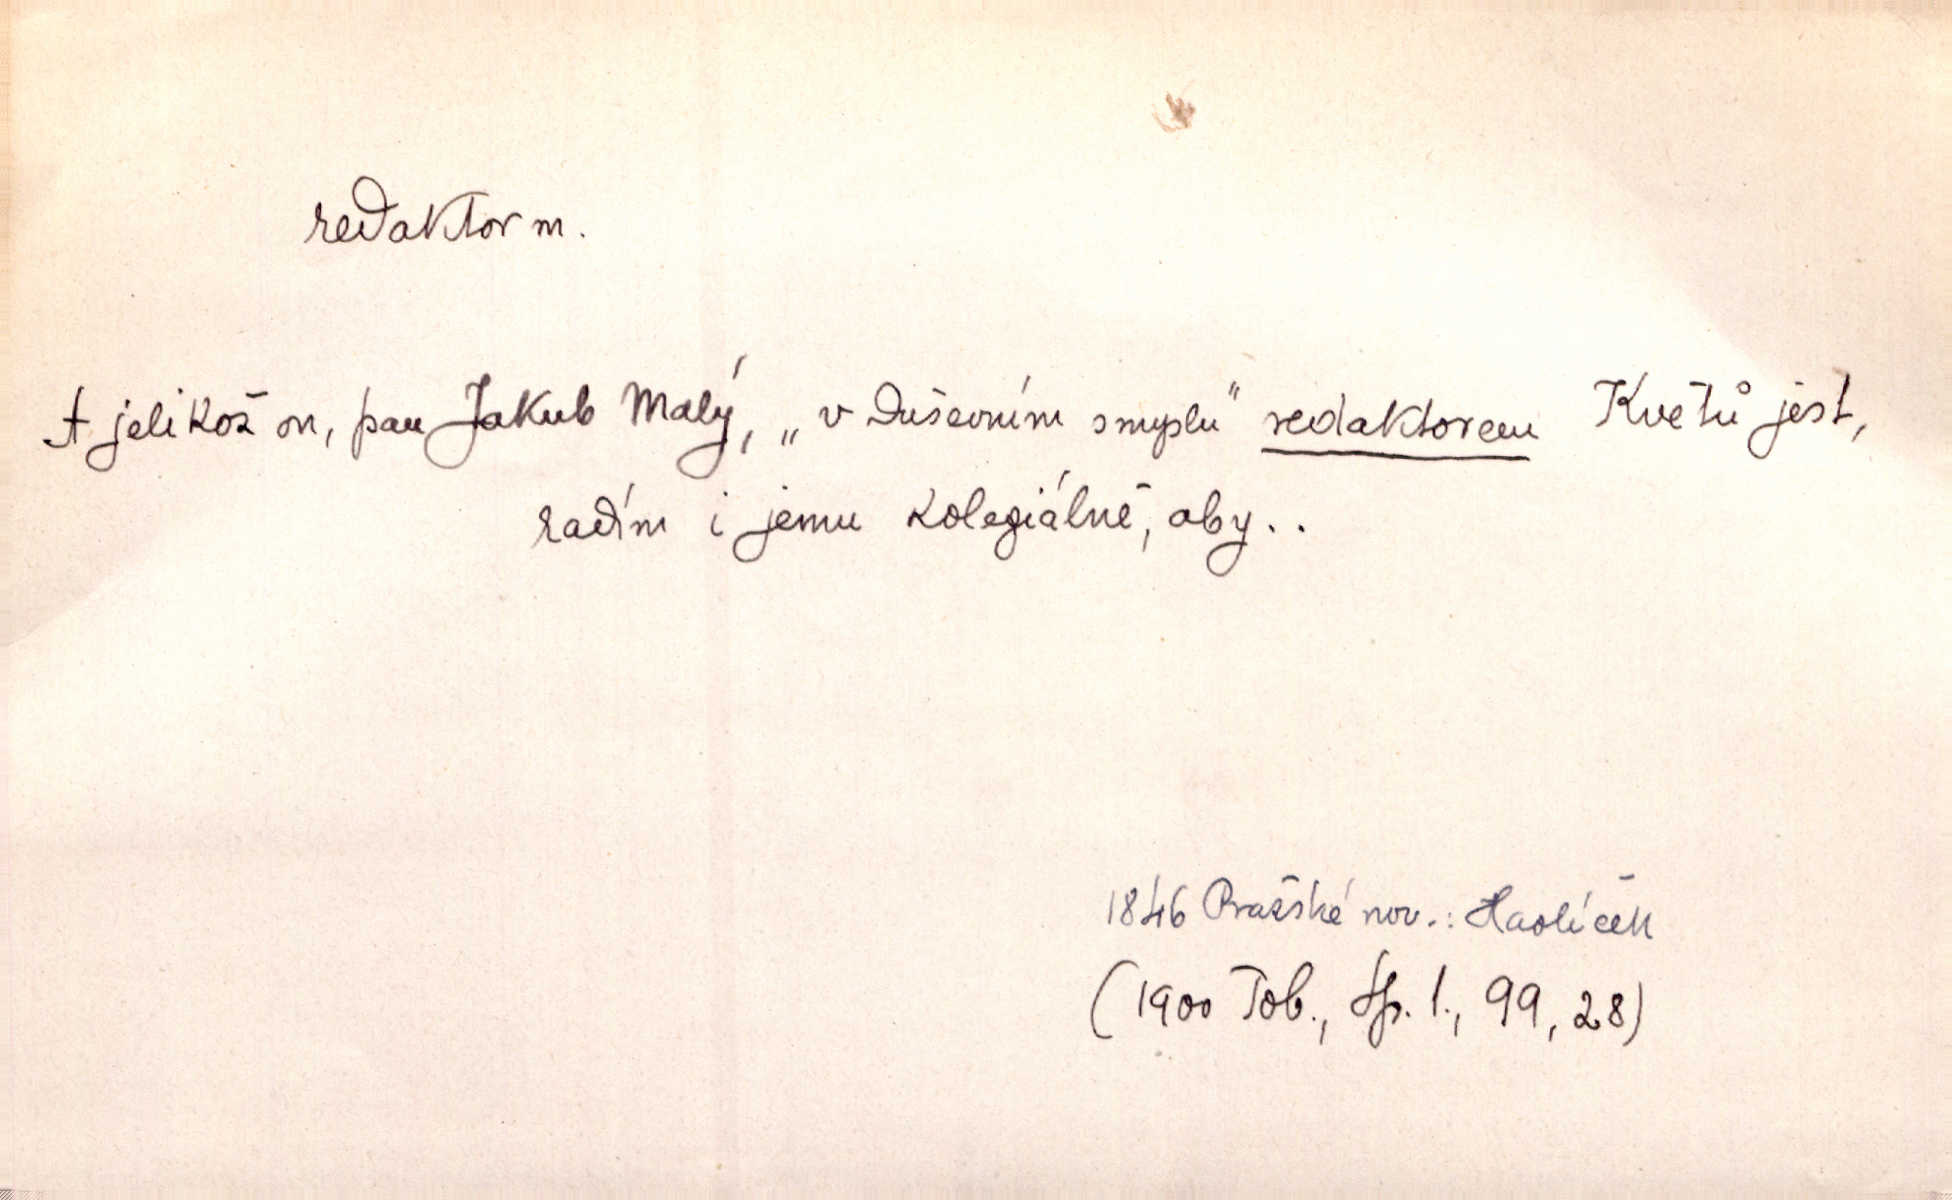 redaktor m.
A jelikož on, pan Jakub Malý, „v duševním smyslu" redaktorem Květů jest,
radím i jemu kolegiálně, aby..
1846 Pražské nov.: Havlíček
(1900 Tob., Sp. 1., 99, 28)